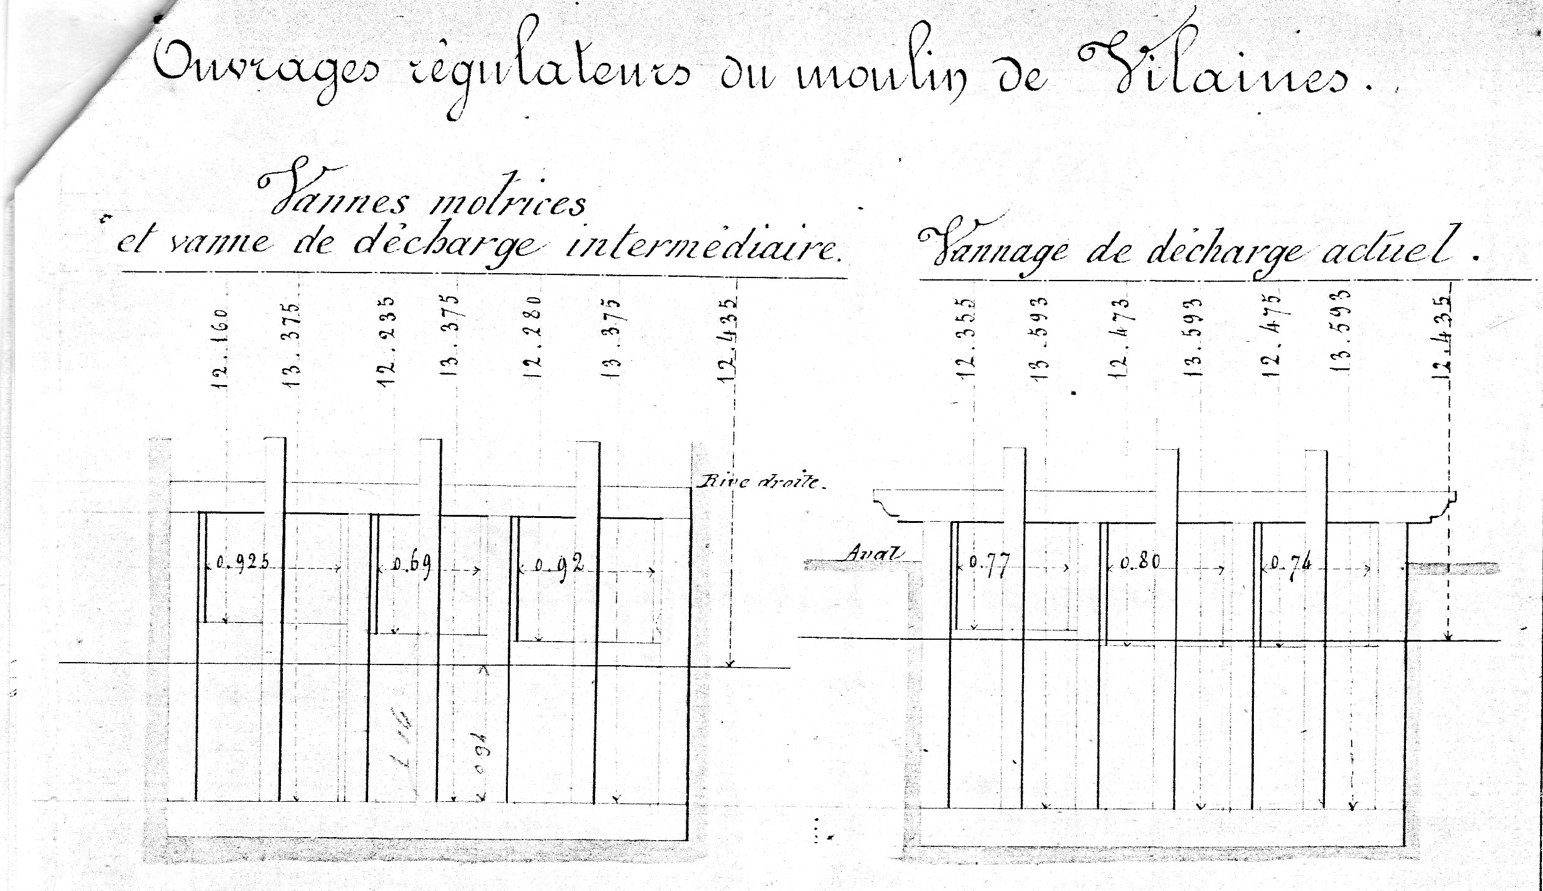 Ouvrages régulateurs du moulin de Vilaines.
Vannes motrices
et vanne de décharge intermédiaire.
12.160
13.375
12.235
13.375
12.280
13.375
12.435
Rive droite.
0.925
0.69
0.92
Vannage de décharge actuel.
12.355
13.593
12.473
13.593
12.475
13.593
12.435
Aval
0.77
0.80
0.74